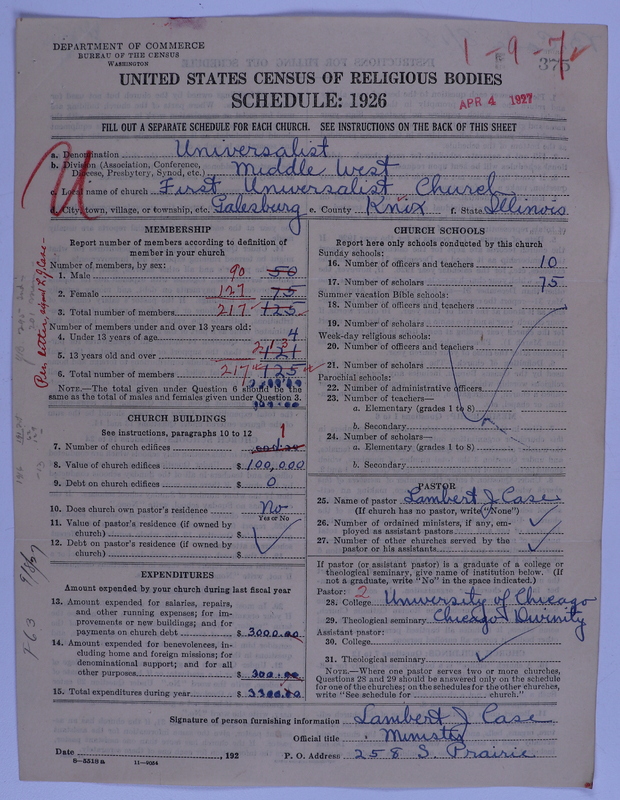 DEPARTMENT OF COMMERCE
BUREAU OF THE CENSUS
WASHINGTON
1-9-7
375
UNITED STATES CENSUS OF RELIGIOUS BODIES
SCHEDULE: 1926
APR 4 1927
FILL OUT A SEPARATE SCHEDULE FOR EACH CHURCH. SEE INSTRUCTIONS ON THE BACK OF THIS SHEET
U
a. Denomination Universalist
b. Division (Association, Conference, Diocese, Presbytery, Synod, etc.) Middle West
c. Local name of church First Universalist Church
d. City, town, village, or township, etc. Galesburg e. County Knox f. State Illinois
MEMBERSHIP
Report number of members according to definition of
member in your church
Number of members, by sex:
1. Male 90 50
2. Female 127 75
3. Total number of members 217 125
Number of members under and over 13 years old:
4. Under 13 years of age 4
5. 13 years old and over 213 121
6. Total number of members 217 125
NOTE.—The total given under Question 6 should be the
same as the total of males and females given under Question 3.
CHURCH BUILDINGS
See instructions, paragraphs 10 to 12
7. Number of church edifices 1
8. Value of church edifices $ 100,000
9. Debt on church edifices $ 0
10. Does church own pastor's residence? No
Yes or No
11. Value of pastor's residence (if owned by
church) $
12. Debt on pastor's residence (if owned by
church) $
EXPENDITURES
Amount expended by your church during last fiscal year
13. Amount expended for salaries, repairs,
and other running expenses; for im-
provements or new buildings; and for
payments on church debt $ 3000.00
14. Amount expended for benevolences, in-
cluding home and foreign missions; for
denominational support; and for all
other purposes $ 300.00
15. Total expenditures during year $ 3300.00
CHURCH SCHOOLS
Report here only schools conducted by this church
Sunday schools:
16. Number of officers and teachers 10
17. Number of scholars 75
Summer vacation Bible schools:
18. Number of officers and teachers
19. Number of scholars
Week-day religious schools:
20. Number of officers and teachers
21. Number of scholars
Parochial schools:
22. Number of administrative officers
23. Number of teachers—
a. Elementary (grades 1 to 8)
b. Secondary
24. Number of scholars—
a. Elementary (grades 1 to 8)
b. Secondary
PASTOR
25. Name of pastor Lambert J. Case
(If church has no pastor, write "None")
26. Number of ordained ministers, if any, em-
ployed as assistant pastors
27. Number of other churches served by the
pastor or his assistants
If pastor (or assistant pastor) is a graduate of a college or
theological seminary, give name of institution below. (If
not a graduate, write "No" in the space indicated.)
Pastor: 2
28. College University of Chicago
29. Theological seminary Chicago Divinity
Assistant pastor:
30. College
31. Theological seminary
NOTE.—Where one pastor serves two or more churches,
Questions 28 and 29 should be answered only on the schedule
for one of the churches; on the schedules for the other churches,
write "See schedule for church."
Signature of person furnishing information Lambert J. Case
Official title Minister
Date , 192
P. O. Address 258 S. Prairie
8—5518a 11—9054